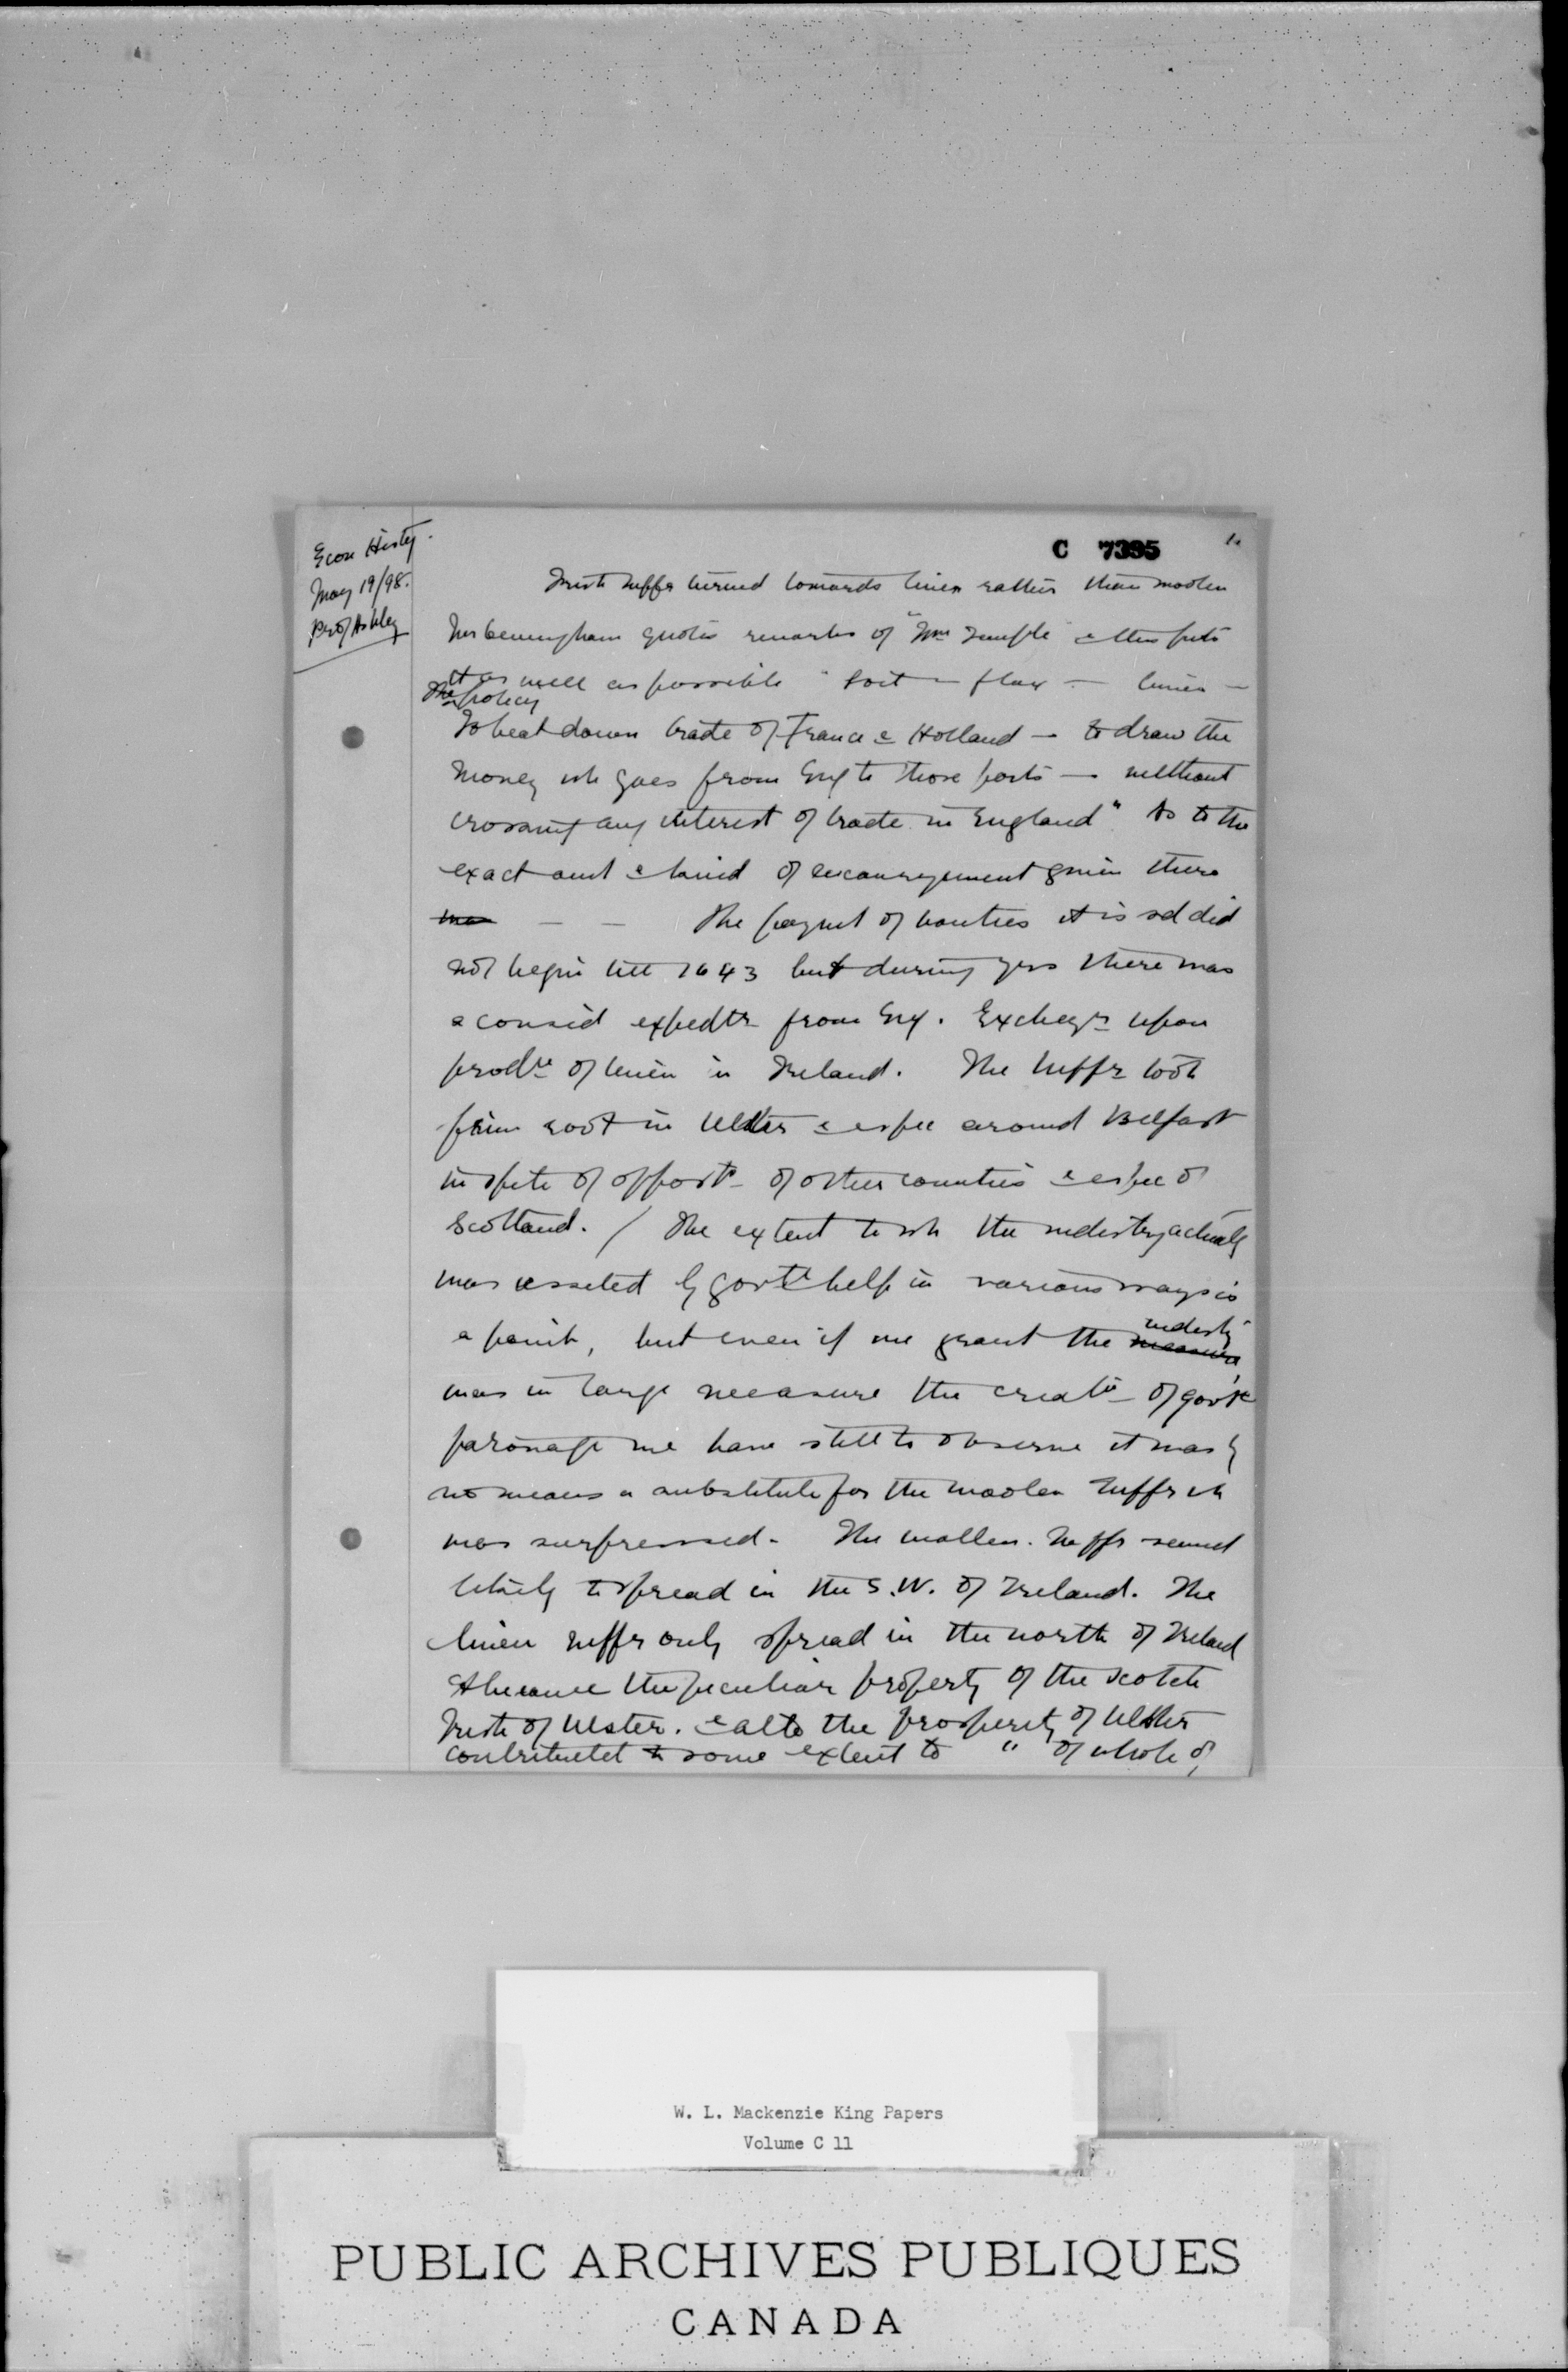 Econ Histy.
May 19/98.
Prof Ashley
C 7395
1.
Irish mffr turned towards linen rather than woolen
Mr Cunningham quotes remarks of "Wm Temple" & thus puts
it as well as possible "soil — flax — linen —
The policy
To beat down trade of France & Holland — to draw the
money wh goes from Eng to those parts — without
crossing any interest of trade in England". As to the
exact amt & kind of encouragement given there
was — — The paymt of bounties it is sd did
not begin till 1643 but during yrs there was
a consid expedtr from Eng. Excheqr upon
prodtn of linen in Ireland. The mffr took
firm root in Ulster & espec around Belfast
in spite of oppost of other counties & espec of
Scotland. / The extent to wh the industry actually
was assisted by govt help in various ways is
a point, but even if we grant the measure industry
was in large measure the creatn of govt
patronage we have still to observe it was by
no means a substitute for the woolen mffr wh
was surpressed. The wollen. mffr seemed
likely to spread in the S.W. of Ireland. The
linen mffr only spread in the north of Ireland
& became the peculiar property of the Scotch
Irish of Ulster. & altho the prosperity of Ulster
contributed to some extent to " of whole of
W. L. Mackenzie King Papers
Volume C 11
PUBLIC ARCHIVES PUBLIQUES
CANADA